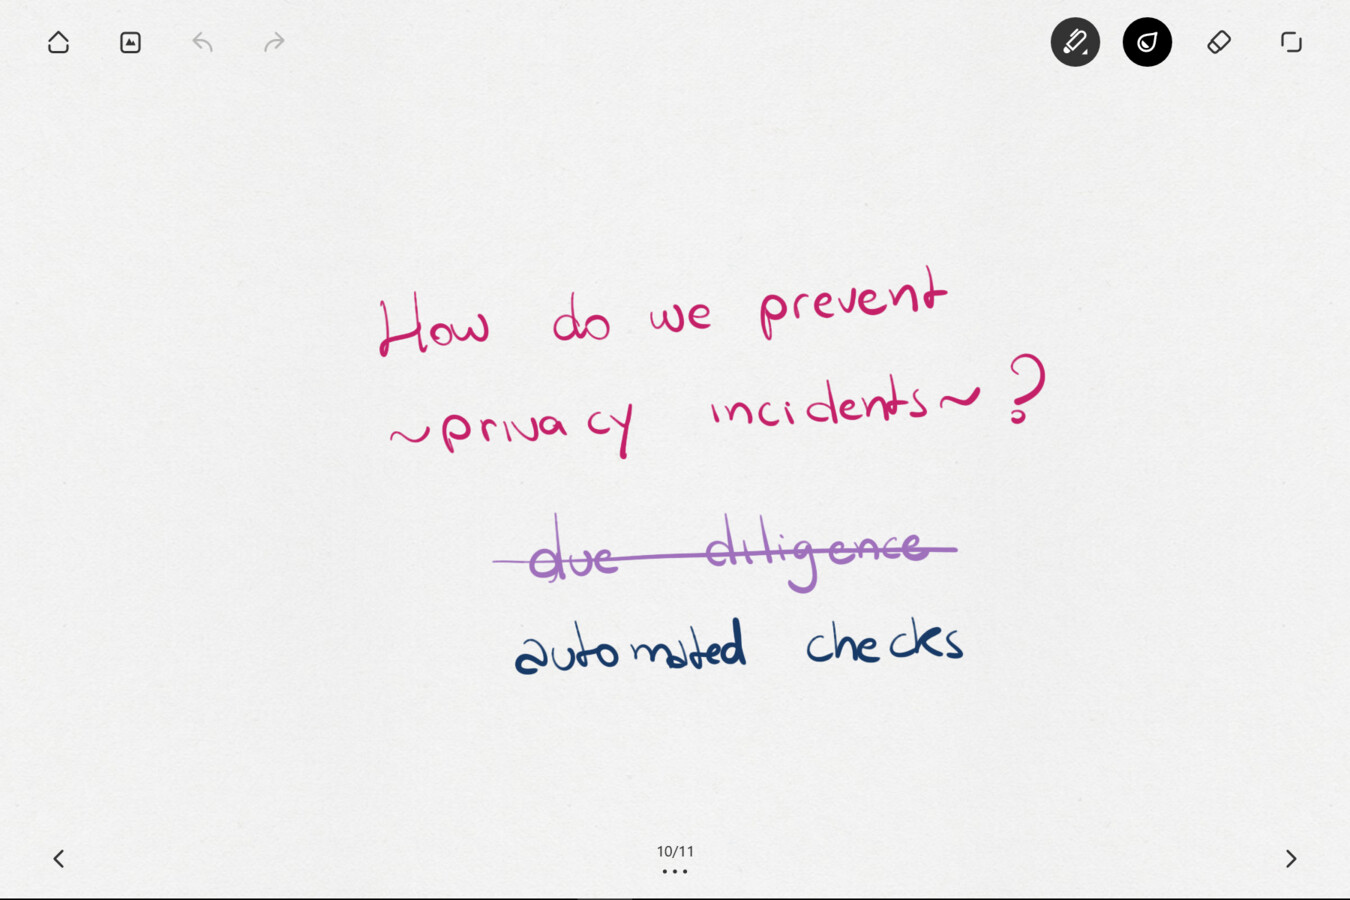 How do we prevent
~privacy incidents~?
due diligence
automated checks
10/11